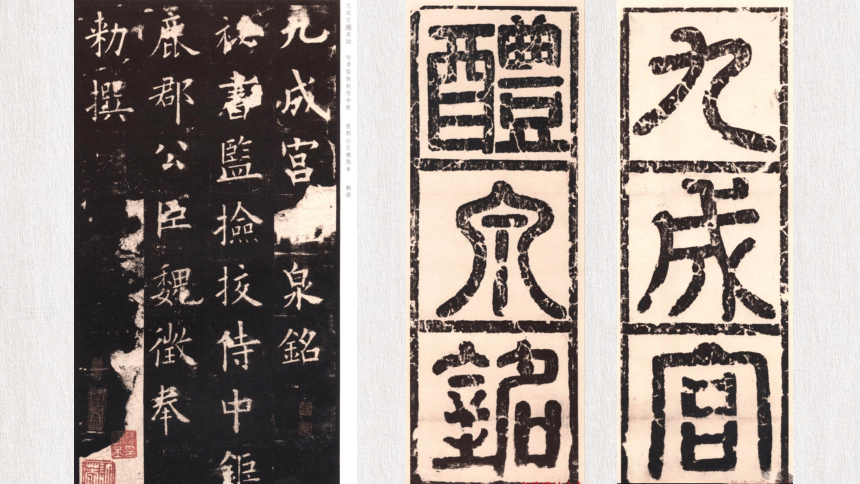 九成宮
醴泉銘
九成宮泉銘
秘書監撿挍侍中鉅
鹿郡公臣魏徵奉
勅撰